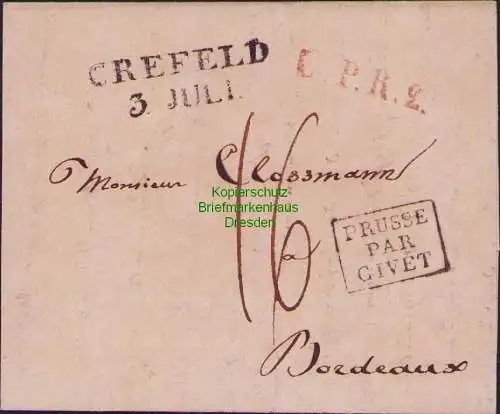 CREFELD
3 JULI.
C. P. R. 2.
Monsieur Clossmann
Kopierschutz
Briefmarkenhaus
Dresden
16
a
PRUSSE
PAR
GIVET
Bordeaux